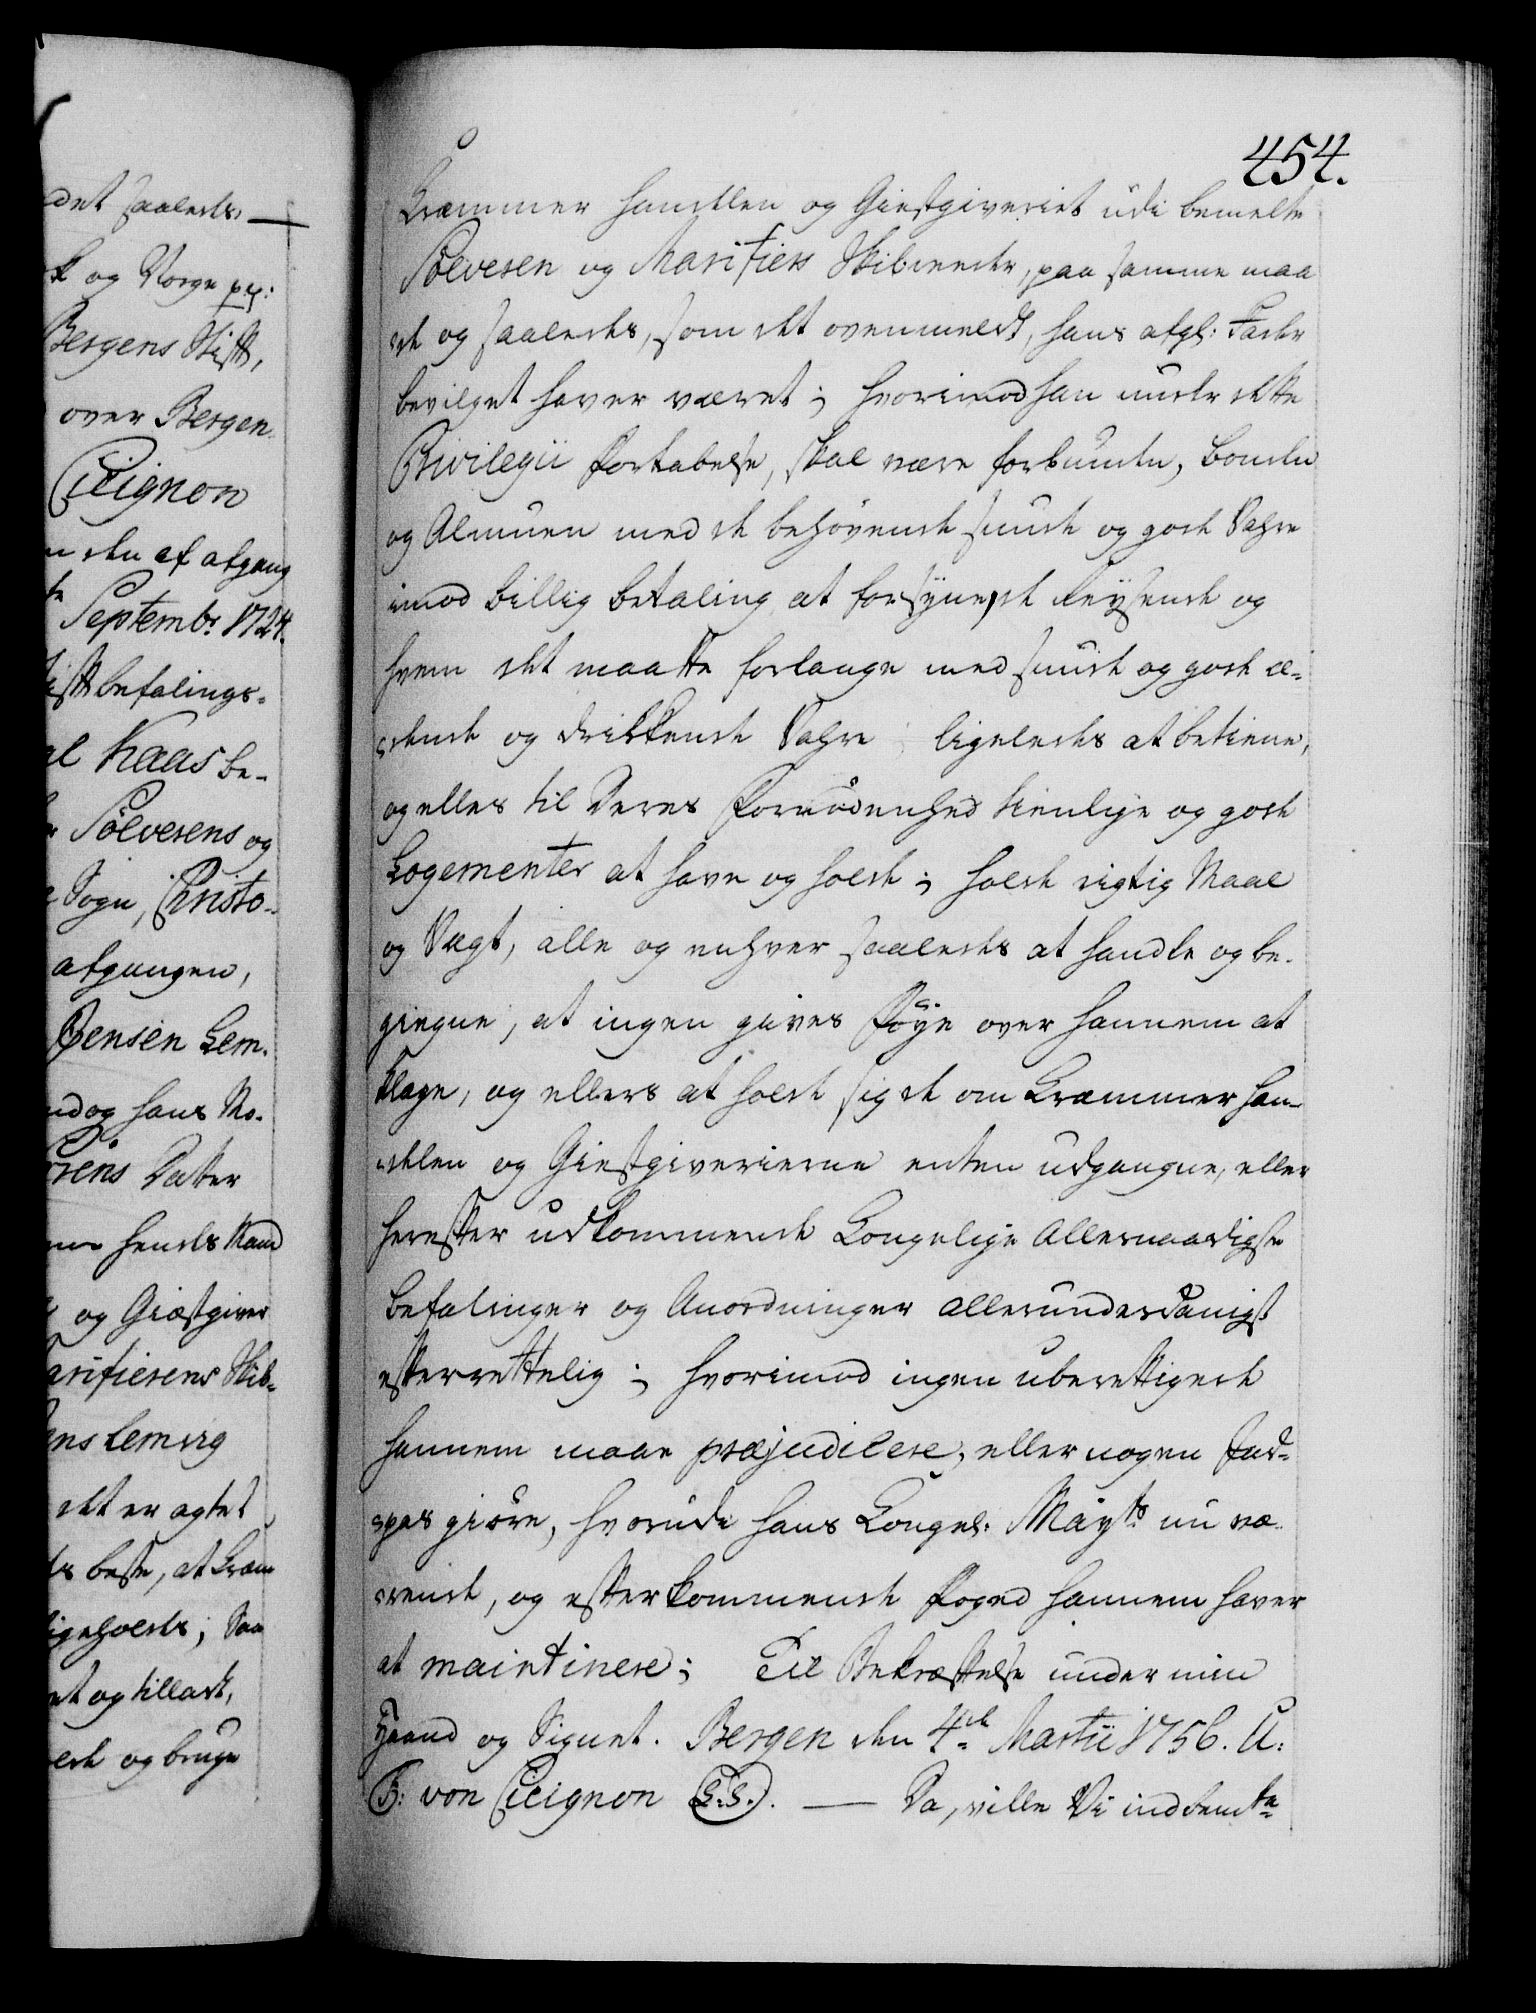 det saaleds. —
k og Norge pp:
Bergens Stift,
over Bergen
Cicignon
den af afgang
te Septembr 1724.
Stiftbefalings-
al Kaas be-
Sølvesens og
Sogn, Christo-
afgangen,
Jensen Lem-
hans Mo-
sens Datter
hendes Mand
og Giæstgiver
Marifiesens Skib-
ens Lemvig
det er agtet
ds beste, at Kram
ligeholds; Saa
et og tilladt,
og bruge
454.
Kræmmer Handlen og Giestgiveriet udi bemelte
Sölvesen og Marifiess Skibreede, paa samme maa
de og saaleds, som det ovenmeldt, hans afgl: Fader
bevilget haver været; hvorimod han under dette
Privilegii Fortabelse, skal være forbunden, Bonden
og Almuen med de behøvende sunde og gode Vahre
imod billig betaling at forsyne, de Reysende og
hvem det maatte forlange med sunde og gode æ-
dende og drikkende Vahre ligeleds at betiene,
og ellers til Deres Fornödenhed tienlige og gode
Logementer at have og holde; holde rigtig Maal
og Vægt, alle og enhver saaleds at handle og be-
giegne, at ingen gives Föye over hannem at
klage, og ellers at holde sig de om Kræmmer Han-
delen og Giestgiverierne enten udgangne, eller
herefter udkommende Kongelige Allernaadigste
Befalinger og Anordninger allerunderdanigst
efterrettelig; hvorimod ingen uberettigede
hannem maae præjudicere, eller nogen Ind-
pas giöre, hvorudi hans Kongel: Mayts nu væ-
rende, og efterkommende Foged hannem haver
at maintinere; Til Bekræftelse under min
Haand og Signet. Bergen den 4de Martii 1756. U:
F: von Cicignon (L.S.). — Da, ville Vi indbemte